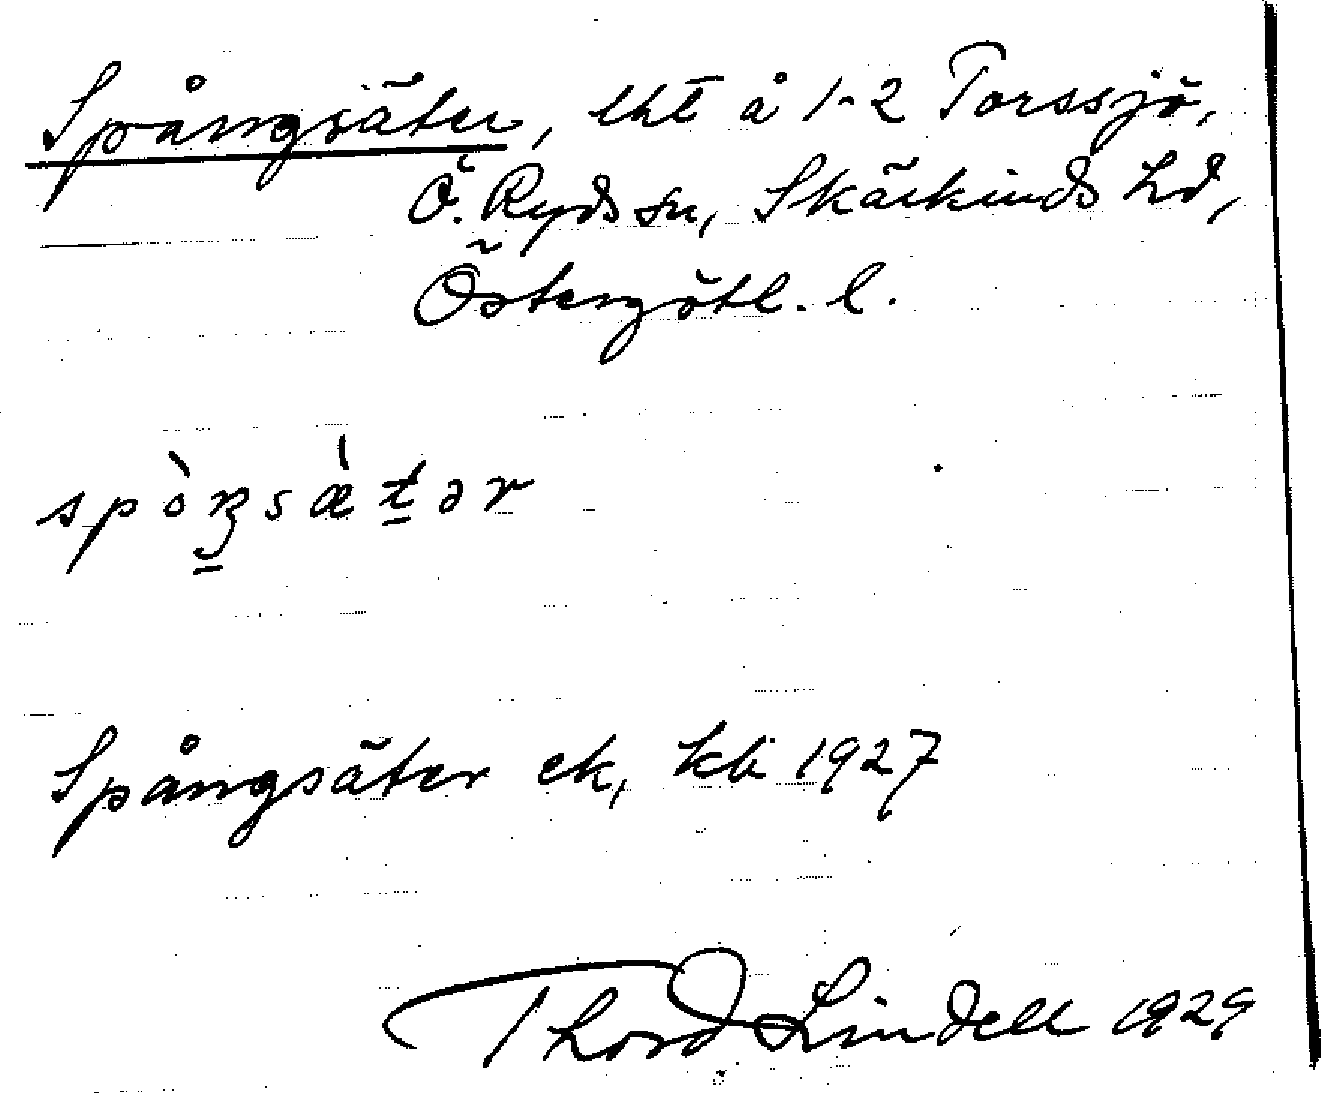 Spångsäter, lht å 1-2 Torssjö,
Ö. Ryds sn, Skärkinds hd,
Östergötl. l.
spòŋsàtər
Spångsäter ek, kb 1927
Thord Lindell 1929